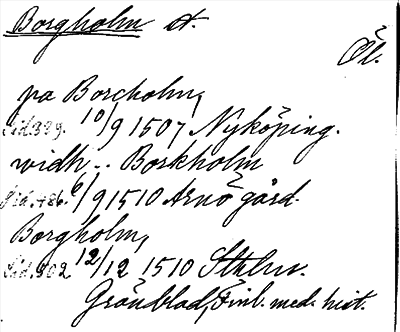 Borgholm st.
Öl.
pa Borcholm,
Sid. 339. 10/9 1507 Nyköping.
widh .. Borkholm
Sid. 486. 6/9 1510 Arnö gård.
Borgholm,
Sid. 502 12/12 1510 Sthlm.
Grönblad, Finl. med. hist.